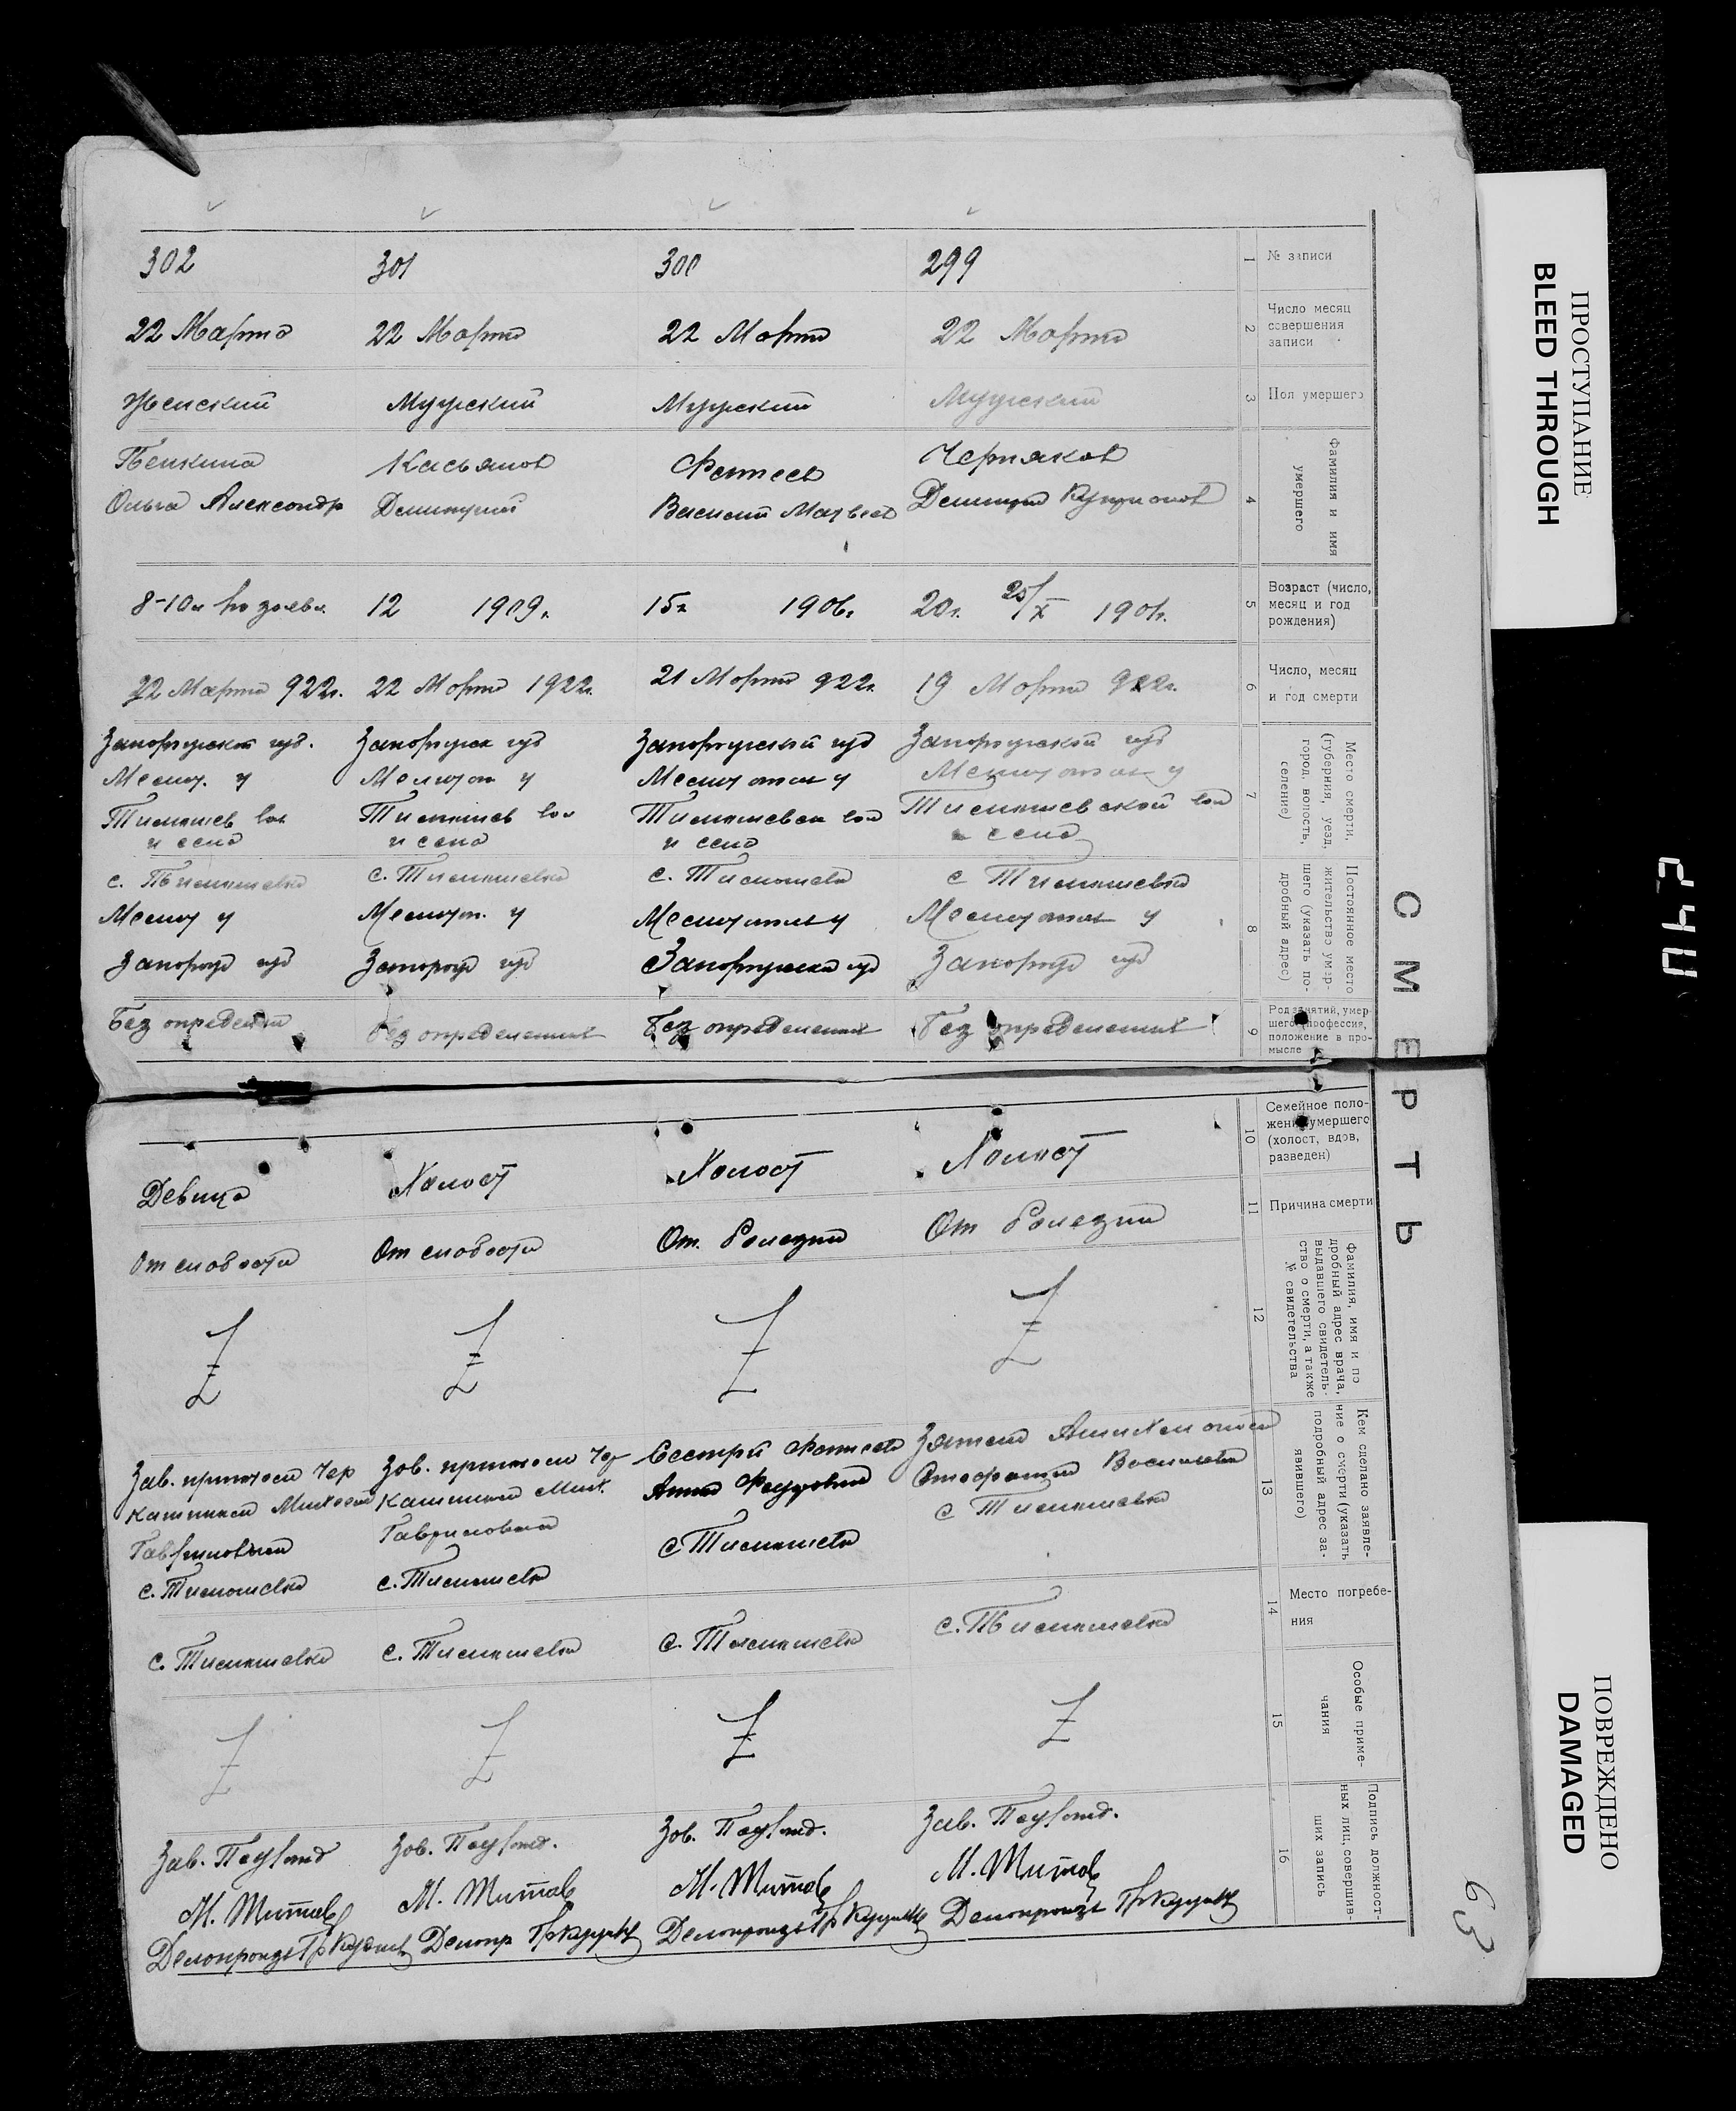 СМЕРТЬ
№ записи
1
299
300
301
302
Число месяц
совершения
записи
2
22 Марта
22 Марта
22 Марта
22 Марта
Пол умершего
3
Мужской
Мужской
Мужской
Женский
Фамилия и имя
умершего
4
Черняков
Фатеев
Василий Матвеев
Касьянов
Димитрий
Пенкина
Ольга Александр
Возраст (число,
месяц и год
рождения)
5
20г. 25/X 1901г.
15г 1906г
12 1909г.
8-10л по заявл.
Число, месяц
и год смерти
6
19 Марта 922г.
21 Марта 922г.
22 Марта 1922г.
22 Марта 922г.
Место смерти,
(губерния, уезд,
город, волость,
селение)
7
Запорожской губ
Мелитопол у
Тимошевской вол
села
Запорожской губ
Мелитопол у
Тимошевск вол
и села
Запорожск губ
Мелитоп у
Тимошев вол
и села
Запорожской губ.
Мелит. у
Тимошев вол
и села
Постоянное место
жительство умер-
шего (указать по-
дробный адрес)
8
с Тимошевка
Мелитопол у
Запорож губ
с. Тимошевка
Мелитопол у
Запорожска губ
с. Тимошевка
Мелитоп. у
Запорож губ
с. Тимошевка
Мелит у
Запорож губ
Род занятий, умер-
шего (профессия,
положение в про-
мысле
9
Без определения
Без определения
Без определения
Без определений
Семейное поло-
жение умершего
(холост, вдов,
разведен)
10
Холост
Холост
Холост
Девица
Причина смерти
11
От болезни
От. болезни
От слабости
От слабости
Фамилия, имя и по
дробный адрес врача,
выдавшего свидетель-
ство о смерти, а также
№ свидетельства
12
Z
Z
Z
Z
Кем сделано заявле-
ние о смерти (указать
подробный адрес за-
явившего)
13
с Тимошевка
Сестрой Фатеева
Анна
с Тимошевка
Зав. приютом Чер
Мих.
Гавриловым
с. Тимошевка
Зав. приютом Чер
Михаил
Гавриловым
с. Тимошевка
Место погребе-
ния
14
с. Тимошевка
с. Тимошевка
с. Тимошевка
с. Тимошевка
Особые приме-
чания
15
Z
Z
Z
Z
Подпись должност-
ных лиц, совершив-
ших запись
16
Зав.
М. Титов
Делопроизв
Зав.
М. Титов
Делопроизв
Зав.
М. Титов
Делопр
Зав.
М. Титов
Делопроизв
63
ПРОСТУПАНИЕ
BLEED THROUGH
ПОВРЕЖДЕНО
DAMAGED